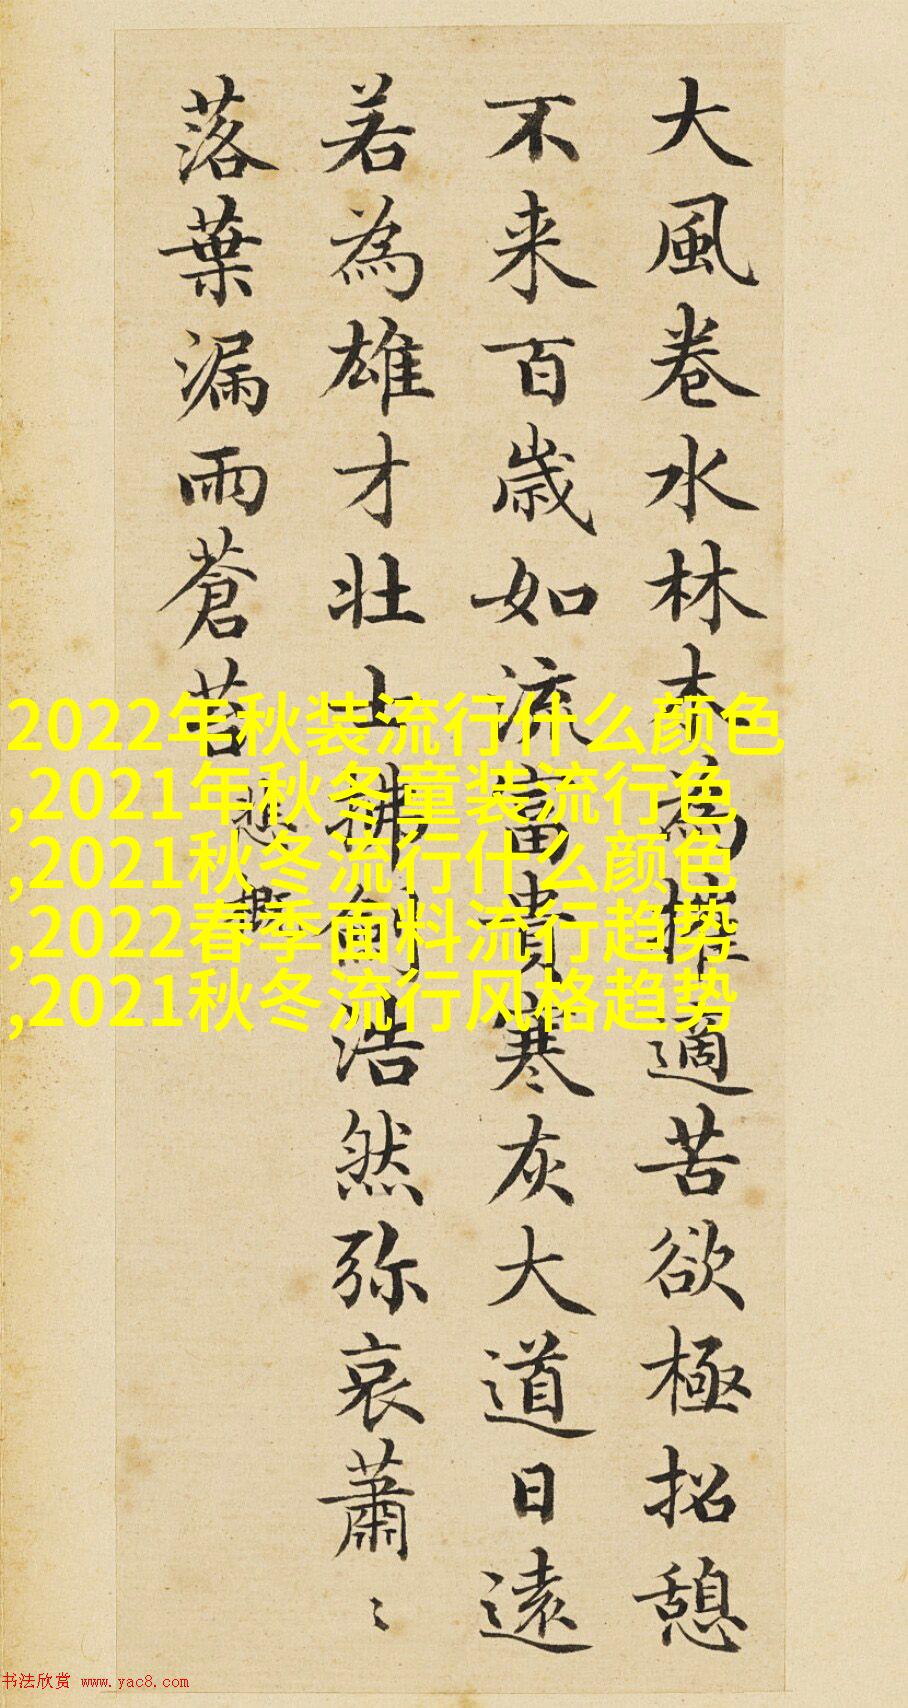 大風卷水林木為摧適苦欲極招憩
不来百歳如流富貴寒灰大道日遠
若為雄才壯士拂劒浩然弥哀蕭〻
落葉漏雨蒼苔
悲慨
2022年秋装流行什么颜色
,2021年秋冬童装流行色
,2021秋冬流行什么颜色
,2022春季面料流行趋势
,2021秋冬流行风格趋势
书法欣赏 www.yac8.com